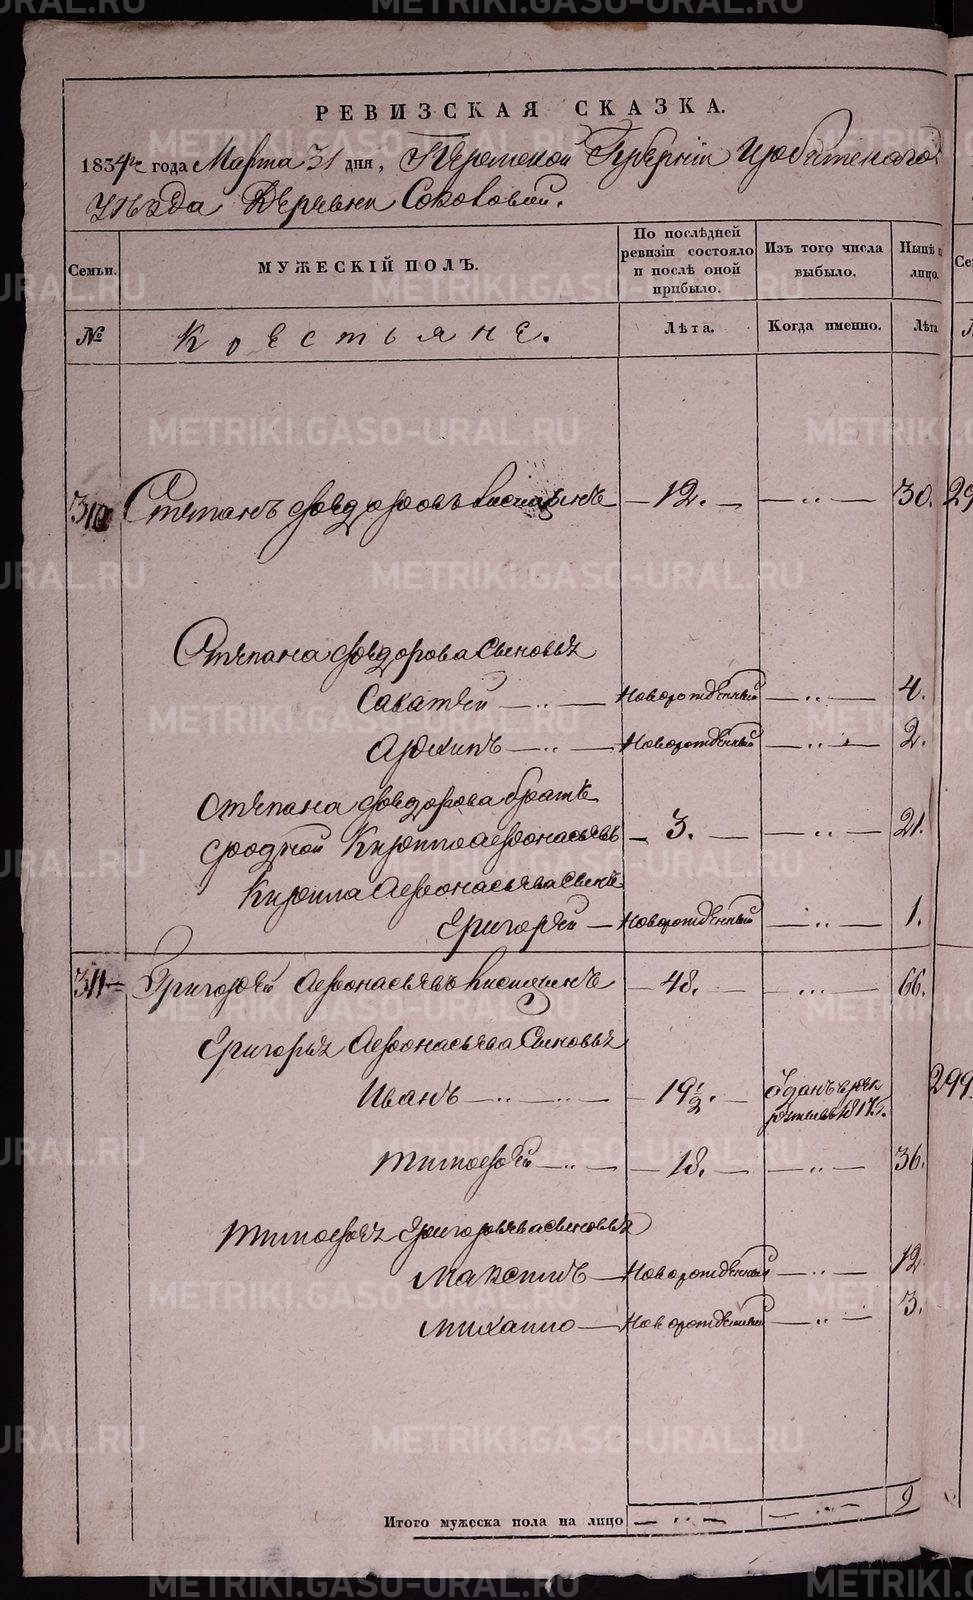 РЕВИЗСКАЯ СКАЗКА.
1834го года Марта 31 дня, Пермской Губернiи Ирбитского
Уѣзда Деревни Соковой.
Семьи. МУЖЕСКІЙ ПОЛЪ. По послѣдней ревизіи состояло и послѣ оной прибыло. Изъ того числа выбыло. Нынѣ н лицо.
№ Крестьяне. Лѣта. Когда именно. Лѣта
310 Степанъ Федоровъ — 12. — — „ — 30.
Степана Федорова Сыновья
Саватей — „ — Новорожденный — „ — 4.
Архипъ — „ — Новорожденный — „ — 2.
Степана Федорова братъ
сродной Кирило Афонасьевъ — 3. — — „ — 21.
Кирила Афонасьева Сынъ
Григорей — Новорожденный — „ — 1.
311 Григорей Афонасьевъ Кисицынъ — 48. — „ — 66.
Григорья Афонасьева Сыновья
Иванъ — „ — „ — 19 1/2. — отданъ в рек
рыты въ 1817 г.
Тимофей — „ — 18. — — „ — 36.
Тимофея Григорьева сыновья
Максимъ — Новорожденный — „ — 12
Михаило — Новорожденный — „ — 3.
Итого мужеска пола на лицо — „ — — „ — 9
29
299
METRIKI.GASO-URAL.RU